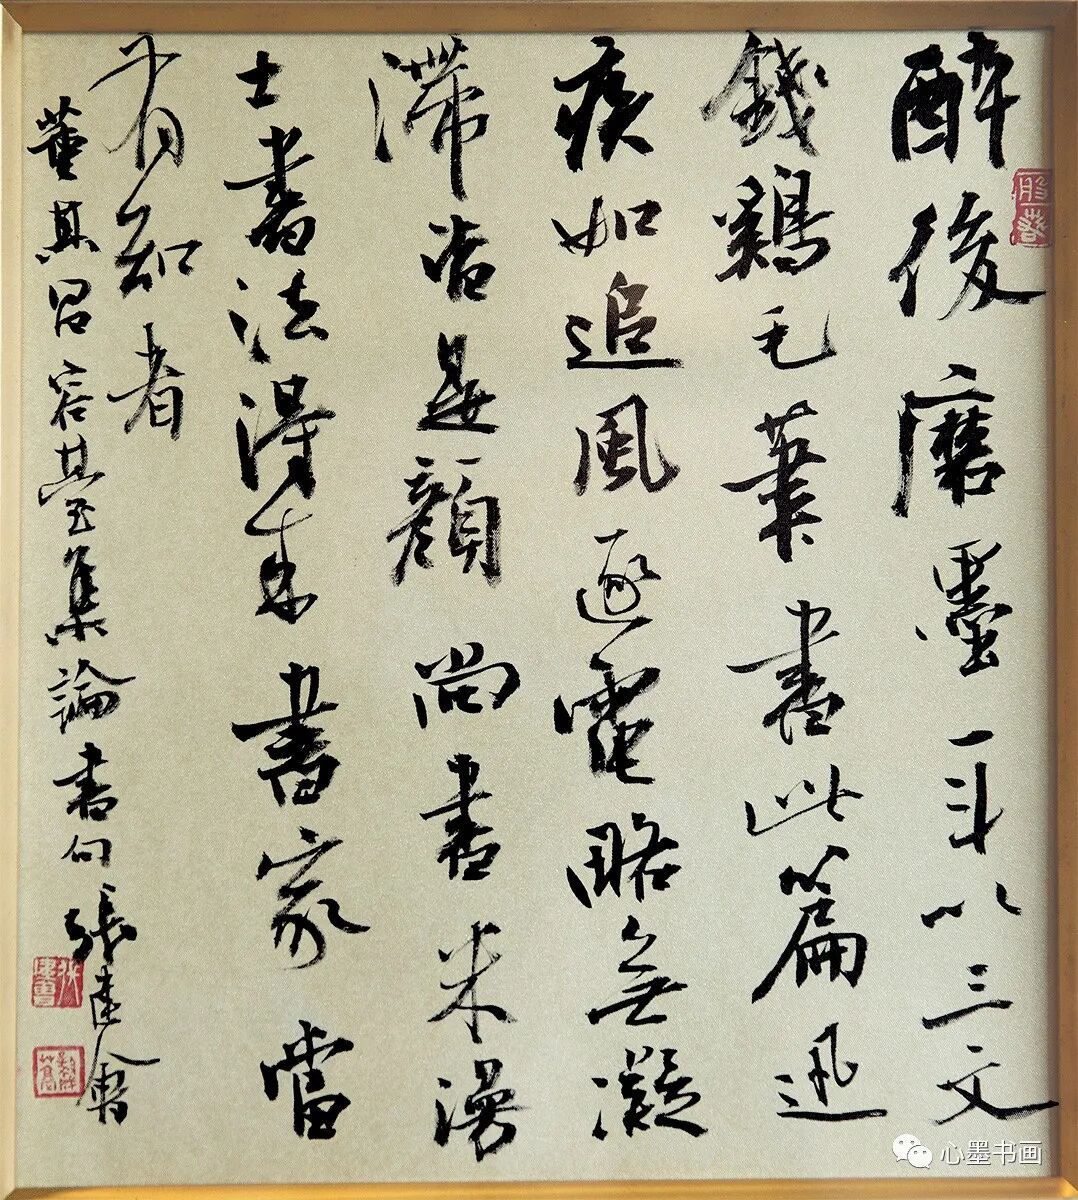 醉後磨墨一斗以三文
錢鷄毛筆書此篇迅
疾如追風逐電略無凝
滯皆是顔尚書米漫
士書法得來書家當
有知者
董其昌容臺集論書句張建會
心墨书画